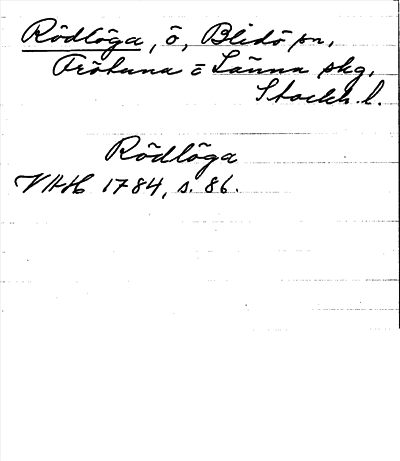 Rödlöga, ö, Blidö sn,
Frötuna o Länna skg,
Stockh. l.
Rödlöga
VAH 1784, s. 86.